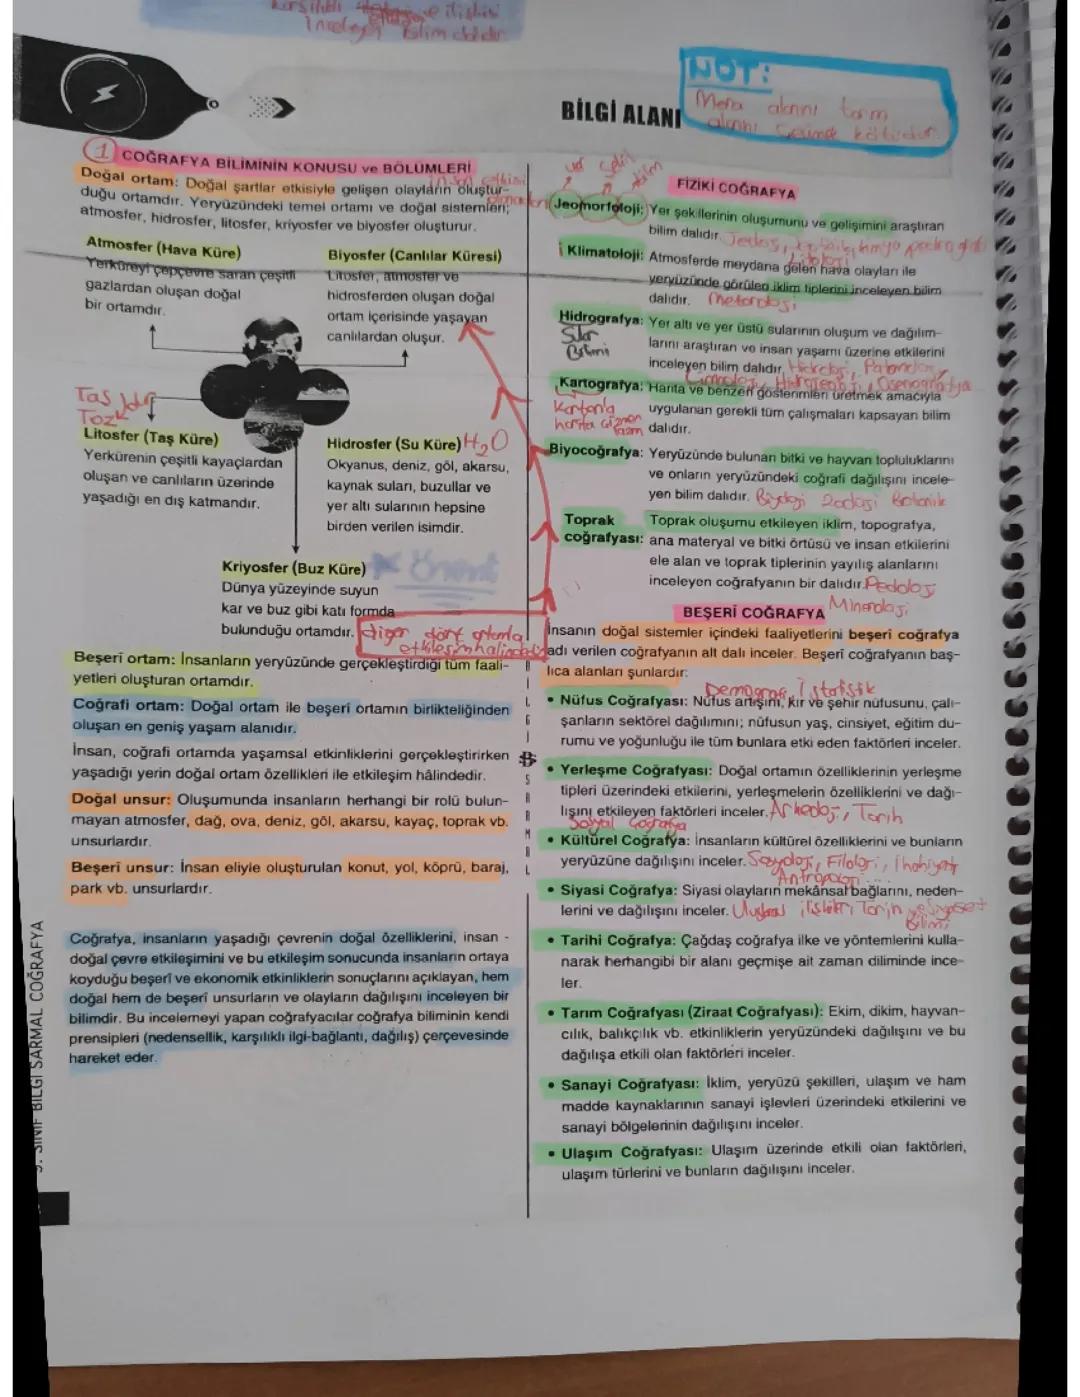 karşılıklı ilişkisi
İnceleyen bilim dalıdır.
NOT:
Mera alanını tarım
alanı
BİLGİ ALANI
1 COĞRAFYA BİLİMİNİN KONUSU ve BÖLÜMLERİ
insan etkisi
olmadan
Doğal ortam: Doğal şartlar etkisiyle gelişen olayların oluştur-
duğu ortamdır. Yeryüzündeki temel ortamı ve doğal sistemleri;
atmosfer, hidrosfer, litosfer, kriyosfer ve biyosfer oluşturur.
Atmosfer (Hava Küre)
Yerküreyi çepçevre saran çeşitli
gazlardan oluşan doğal
bir ortamdır.
Biyosfer (Canlılar Küresi)
Litosfer, atmosfer ve
hidrosferden oluşan doğal
ortam içerisinde yaşayan
canlılardan oluşur.
Taş
Litosfer (Taş Küre)
Yerkürenin çeşitli kayaçlardan
oluşan ve canlıların üzerinde
yaşadığı en dış katmandır.
Hidrosfer (Su Küre) H2O
Okyanus, deniz, göl, akarsu,
kaynak suları, buzullar ve
yer altı sularının hepsine
birden verilen isimdir.
Kriyosfer (Buz Küre)
Önemli
Dünya yüzeyinde suyun
kar ve buz gibi katı formda
bulunduğu ortamdır.
diğer dört ortamla
etkileşim halindedir
Beşerî ortam: İnsanların yeryüzünde gerçekleştirdiği tüm faali-
yetleri oluşturan ortamdır.
Coğrafi ortam: Doğal ortam ile beşerî ortamın birlikteliğinden
oluşan en geniş yaşam alanıdır.
İnsan, coğrafi ortamda yaşamsal etkinliklerini gerçekleştirirken
yaşadığı yerin doğal ortam özellikleri ile etkileşim hâlindedir.
Doğal unsur: Oluşumunda insanların herhangi bir rolü bulun-
mayan atmosfer, dağ, ova, deniz, göl, akarsu, kayaç, toprak vb.
unsurlardır.
Beşerî unsur: İnsan eliyle oluşturulan konut, yol, köprü, baraj,
park vb. unsurlardır.
Coğrafya, insanların yaşadığı çevrenin doğal özelliklerini, insan -
doğal çevre etkileşimini ve bu etkileşim sonucunda insanların ortaya
koyduğu beşerî ve ekonomik etkinliklerin sonuçlarını açıklayan, hem
doğal hem de beşerî unsurların ve olayların dağılışını inceleyen bir
bilimdir. Bu incelemeyi yapan coğrafyacılar coğrafya biliminin kendi
prensipleri (nedensellik, karşılıklı ilgi-bağlantı, dağılış) çerçevesinde
hareket eder.
9. SINIF BİLGİ SARMAL COĞRAFYA
BİLGİ SARMAL
FİZİKİ COĞRAFYA
yer şekil bilim
Jeomorfoloji: Yer şekillerinin oluşumunu ve gelişimini araştıran
bilim dalıdır. Jeoloji, kimya
Klimatoloji: Atmosferde meydana gelen hava olayları ile
yeryüzünde görülen iklim tiplerini inceleyen bilim
dalıdır. Meteoroloji
Hidrografya: Yer altı ve yer üstü sularının oluşum ve dağılım-
larını araştıran ve insan yaşamı üzerine etkilerini
inceleyen bilim dalıdır. Hidroloji, Potamoloji,
Sular
Bilimi
Limnoloji, Hidrojeoloji, Osenografya
Kartografya: Harita ve benzeri gösterimleri üretmek amacıyla
uygulanan gerekli tüm çalışmaları kapsayan bilim
dalıdır.
Kartonla
harita
Biyocoğrafya: Yeryüzünde bulunan bitki ve hayvan topluluklarını
ve onların yeryüzündeki coğrafi dağılışını incele-
yen bilim dalıdır. Biyoloji Zooloji Botanik
Toprak coğrafyası: Toprak oluşumu etkileyen iklim, topografya,
ana materyal ve bitki örtüsü ve insan etkilerini
ele alan ve toprak tiplerinin yayılış alanlarını
inceleyen coğrafyanın bir dalıdır. Pedoloji
Mineroloji
BEŞERÎ COĞRAFYA
İnsanın doğal sistemler içindeki faaliyetlerini beşerî coğrafya
adı verilen coğrafyanın alt dalı inceler. Beşerî coğrafyanın baş-
lıca alanları şunlardır:
Demografi, İstatistik
• Nüfus Coğrafyası: Nüfus artışını, kır ve şehir nüfusunu, çalı-
şanların sektörel dağılımını; nüfusun yaş, cinsiyet, eğitim du-
rumu ve yoğunluğu ile tüm bunlara etki eden faktörleri inceler.
• Yerleşme Coğrafyası: Doğal ortamın özelliklerinin yerleşme
tipleri üzerindeki etkilerini, yerleşmelerin özelliklerini ve dağı-
lışını etkileyen faktörleri inceler. Arkeoloji, Tarih
Sosyal Coğrafya
• Kültürel Coğrafya: İnsanların kültürel özelliklerini ve bunların
yeryüzüne dağılışını inceler. Sosyoloji, Filoloji, İlahiyat
Antropoloji...
• Siyasi Coğrafya: Siyasi olayların mekânsal bağlarını, neden-
lerini ve dağılışını inceler. Uluslararası ilişkiler, Tarih ve Siyaset
Bilimi
• Tarihi Coğrafya: Çağdaş coğrafya ilke ve yöntemlerini kulla-
narak herhangibi bir alanı geçmişe ait zaman diliminde ince-
ler.
• Tarım Coğrafyası (Ziraat Coğrafyası): Ekim, dikim, hayvan-
cılık, balıkçılık vb. etkinliklerin yeryüzündeki dağılışını ve bu
dağılışa etkili olan faktörleri inceler.
• Sanayi Coğrafyası: İklim, yeryüzü şekilleri, ulaşım ve ham
madde kaynaklarının sanayi işlevleri üzerindeki etkilerini ve
sanayi bölgelerinin dağılışını inceler.
• Ulaşım Coğrafyası: Ulaşım üzerinde etkili olan faktörleri,
ulaşım türlerini ve bunların dağılışını inceler.